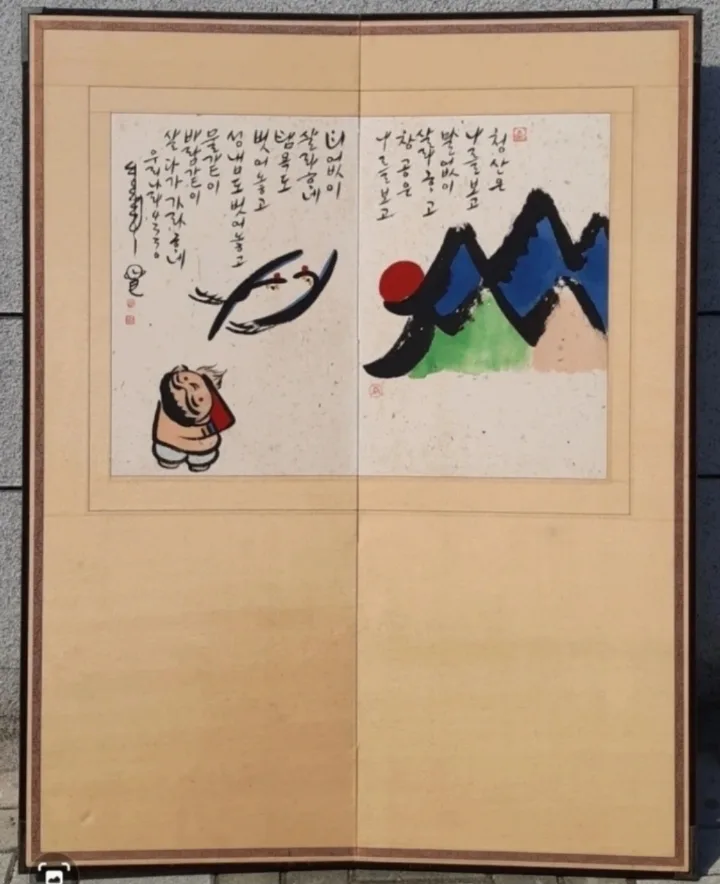 청산은
나를보고
말없이
살라하고
창공은
나를보고
티없이
살라하네
탐욕도
벗어놓고
성냄도벗어놓고
물같이
바람같이
살다가 가라하네
우리나라